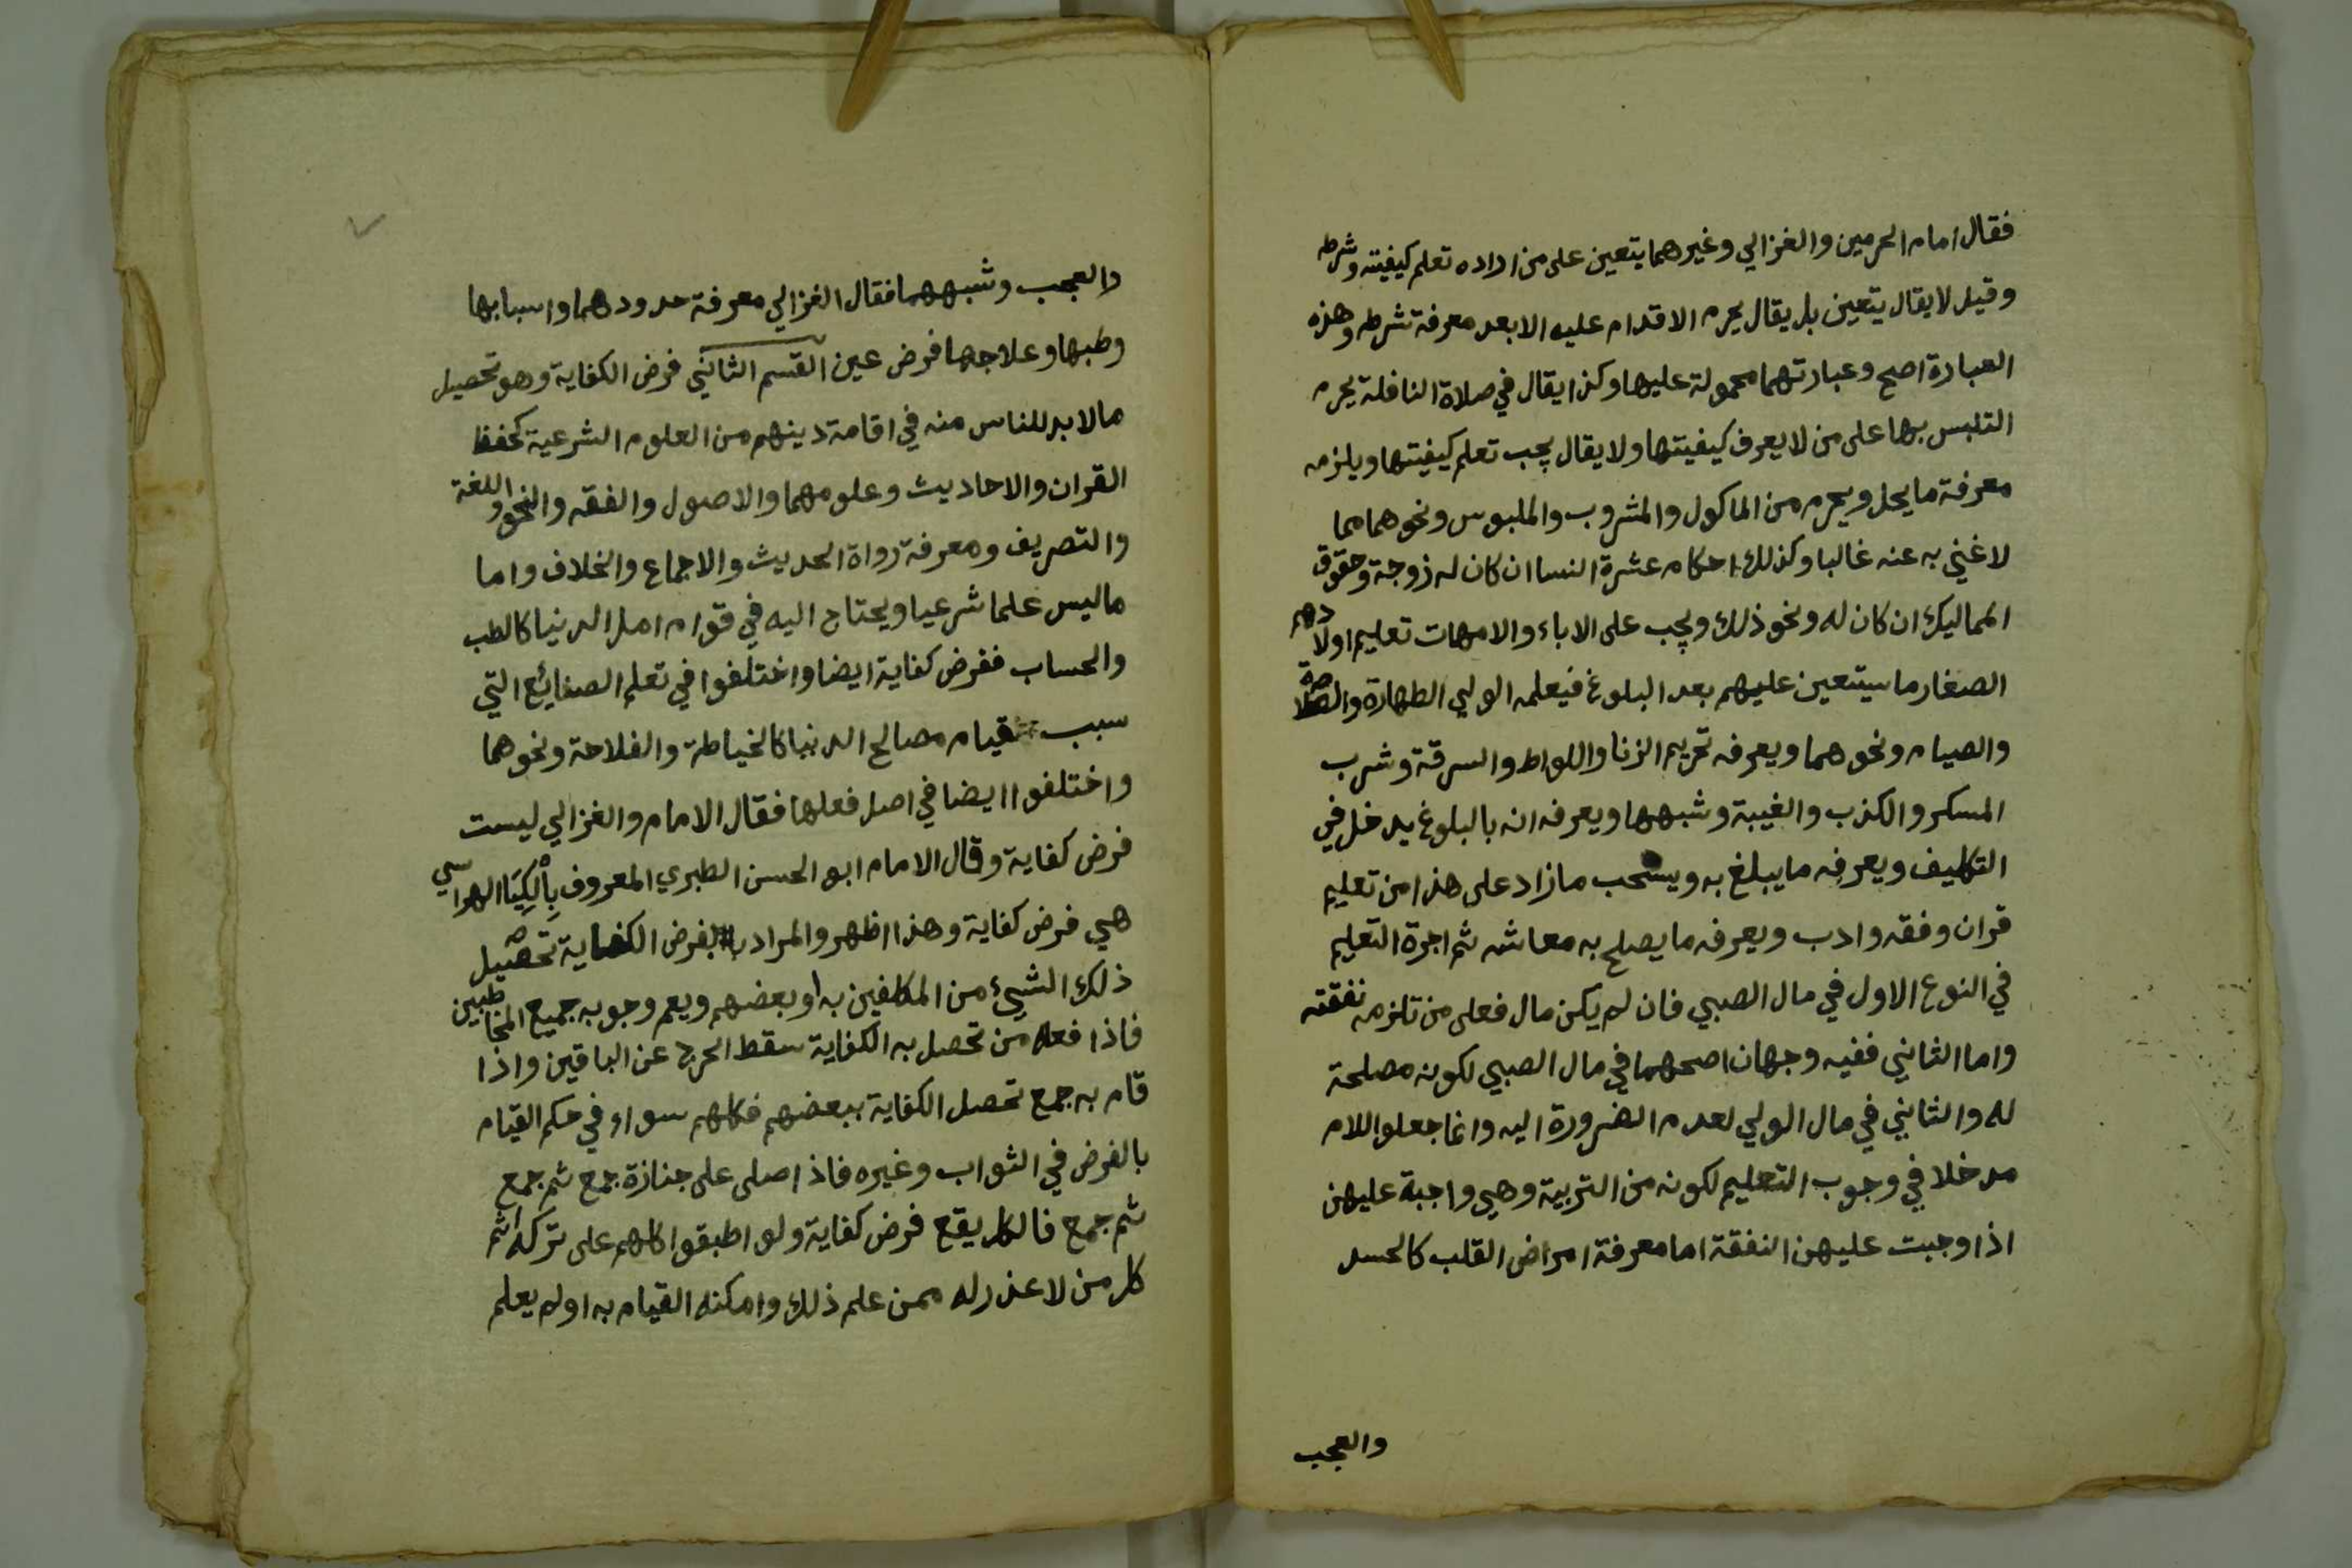 فقال امام الحرمين والغزالي وغيرهما يتعين على من اراده تعلم كيفيته وشرطه
وقيل لا يقال يتعين بل يقال يحرم الاقدام عليه الا بعد معرفة شرطه وهذه
العبارة اصح وعبارتهما محمولة عليها وكذا يقال في صلاة النافلة يحرم
التلبس بها على من لا يعرف كيفيتها ولا يقال يجب تعلم كيفيتها ويلزمه
معرفة ما يحل ويحرم من الماكول والمشروب والملبوس ونحوهما مما
لا غني به عنه غالبا وكذلك احكام عشرة النسا ان كان له زوجة وحقوق
المماليك ان كان له ونحو ذلك ويجب على الاباء والامهات تعليم اولادهم
الصغار ما سيتعين عليهم بعد البلوغ فيعلمه الولي الطهارة والصلاة
والصيام ونحوهما ويعرفه تحريم الزنا واللواط والسرقة وشرب
المسكر والكذب والغيبة وشبهها ويعرفه انه بالبلوغ يدخل في
التكليف ويعرفه ما يبلغ به ويستحب ما زاد على هذا من تعليم
قران وفقه وادب ويعرفه ما يصلح به معاشه ثم اجرة التعليم
في النوع الاول في مال الصبي فان لم يكن مال فعلى من تلزمه نفقته
واما الثاني ففيه وجهان اصحهما في مال الصبي لكونه مصلحة
له والثاني في مال الولي لعدم الضرورة اليه وانما جعلوا للام
مدخلا في وجوب التعليم لكونه من التربية وهي واجبة عليهن
اذا وجبت عليهن النفقة اما معرفة امراض القلب كالحسد
والعجب
والعجب وشبههما فقال الغزالي معرفة حدودهما واسبابها
وطبها وعلاجها فرض عين القسم الثاني فرض الكفاية وهو تحصيل
ما لا بد للناس منه في اقامة دينهم من العلوم الشرعية كحفظ
القران والاحاديث وعلومهما والاصول والفقه والنحو واللغة
والتصريف ومعرفة رواة الحديث والاجماع والخلاف واما
ما ليس علما شرعيا ويحتاج اليه في قوام امر الدنيا كالطب
والحساب ففرض كفاية ايضا واختلفوا في تعلم الصنايع التي
سبب قيام مصالح الدنيا كالخياطة والفلاحة ونحوهما
واختلفوا ايضا في اصل فعلها فقال الامام والغزالي ليست
فرض كفاية وقال الامام ابو الحسن الطبري المعروف بِأَلْكِيَا الهراسي
هي فرض كفاية وهذا اظهر والمراد بفرض الكفاية تحصيل
ذلك الشيء من المكلفين به او بعضهم ويعم وجوبه جميع المخاطبين
فاذا فعله من تحصل به الكفاية سقط الحرج عن الباقين واذا
قام به جمع تحصل الكفاية ببعضهم فكلهم سواء في حكم القيام
بالفرض في الثواب وغيره فاذا صلى على جنازة جمع ثم جمع
ثم جمع فالكل يقع فرض كفاية ولو اطبقوا كلهم على تركه اثم
كل من لا عذر له ممن علم ذلك وامكنه القيام به او لم يعلم